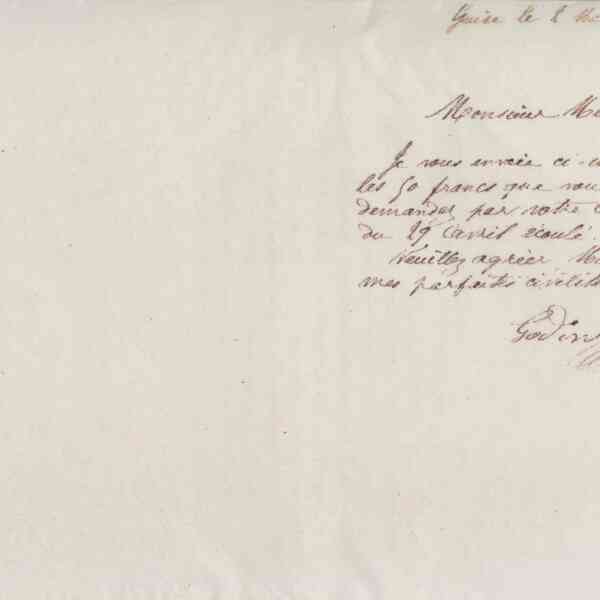 Guise le 2
Monsieur
Je vous envoie ci-
les 50 francs que vou
demandez par votre
du 29 avril écoulé.
Veuillez agréer
mes parfaites civilit
Godin